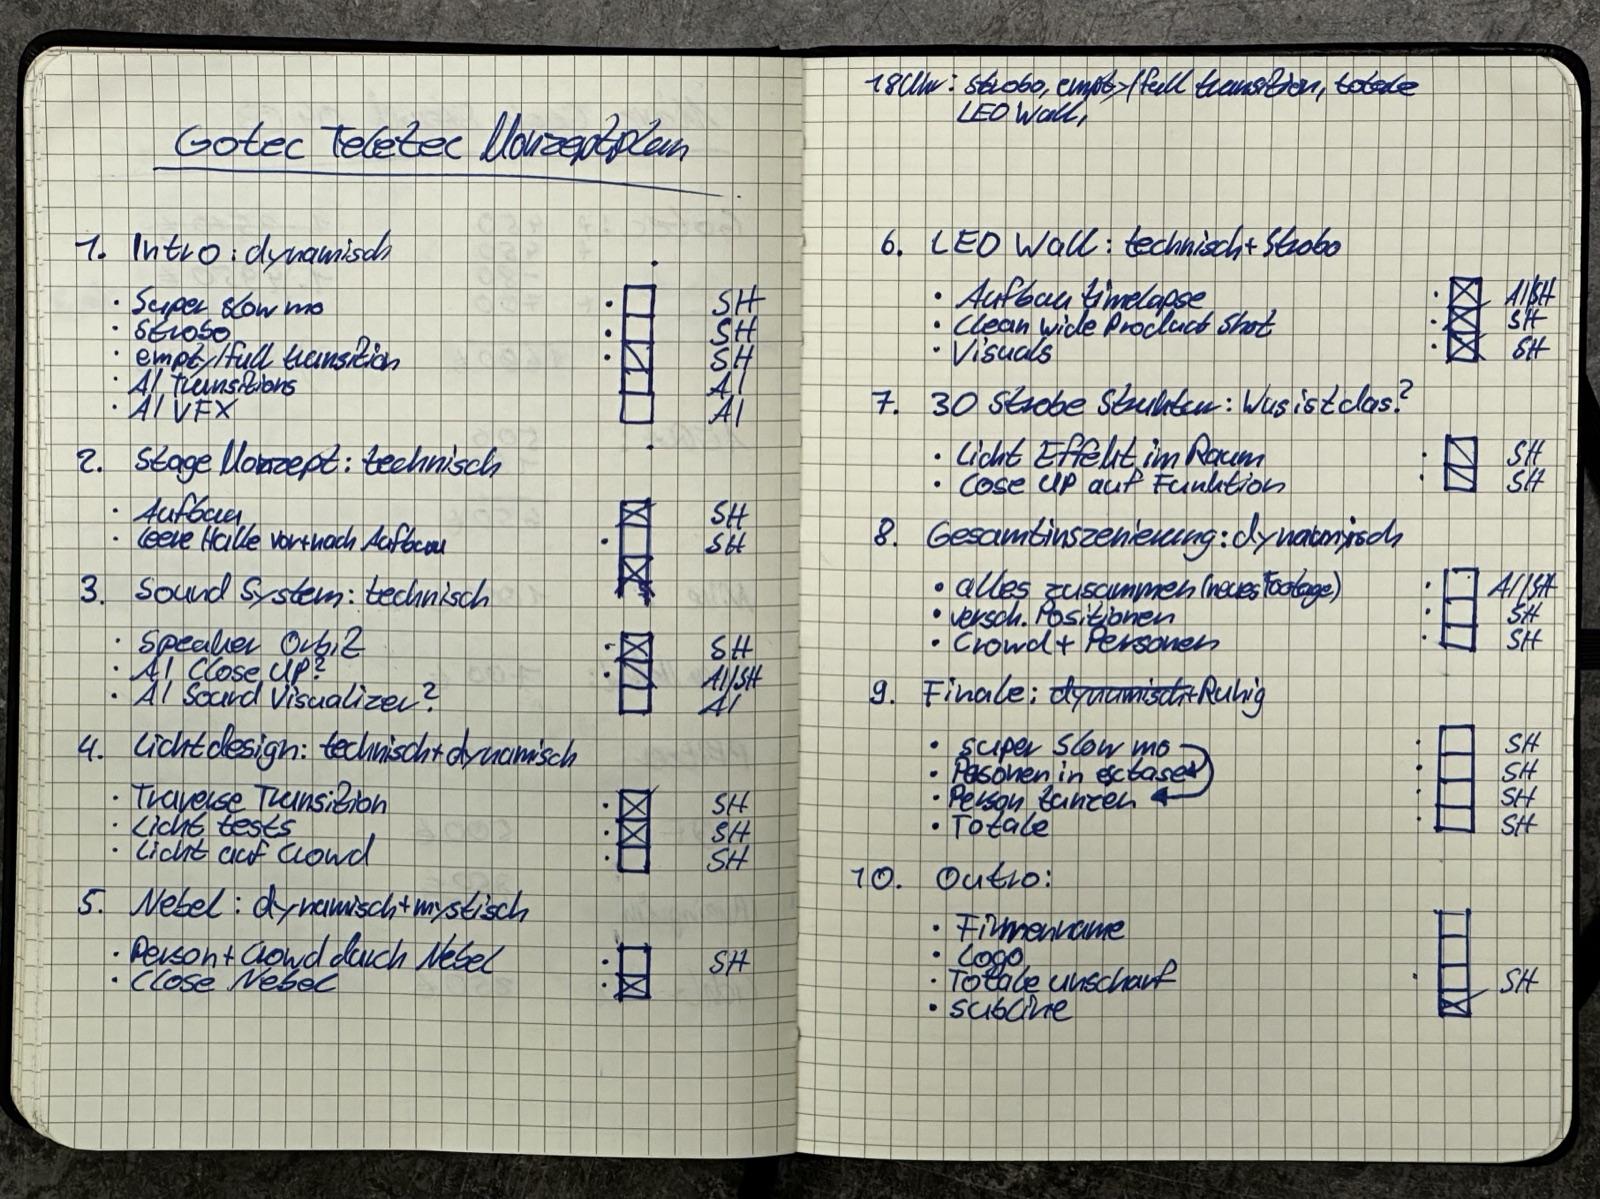 Gotec Teletec Konzeptplan
1. Intro: dynamisch
· Super slow mo SH
· Strobo SH
· empty/full transition SH
· AI transitions AI
· AI VFX AI
2. Stage Konzept: technisch
· Aufbau SH
· leere Halle vor+nach Aufbau SH
3. Sound System: technisch
· Speaker Orbit SH
· AI Close UP? AI/SH
· AI Sound Visualizer? AI
4. Lichtdesign: technisch+dynamisch
· Traverse Transition SH
· Licht tests SH
· Licht auf Crowd SH
5. Nebel: dynamisch+mystisch
· Person+Crowd durch Nebel SH
· Close Nebel
18Uhr: strobo, empty/full transition, totale
LED Wall,
6. LED Wall: technisch+Strobo
· Aufbau timelapse AI/SH
· Clean wide Product Shot SH
· Visuals SH
7. 3D Strobe Struktur: Was ist das?
· Licht Effekt im Raum SH
· Cose UP auf Funktion SH
8. Gesamtinszenierung: dynamisch
· alles zusammen (neues Footage) AI/SH
· versch. Positionen SH
· Crowd + Personen SH
9. Finale: dynamisch+Ruhig
· super slow mo SH
· Pesonen in esctase SH
· Person tanzen SH
· Totale SH
10. Outro:
· Firmenname
· Logo
· Totale unscharf SH
· subline